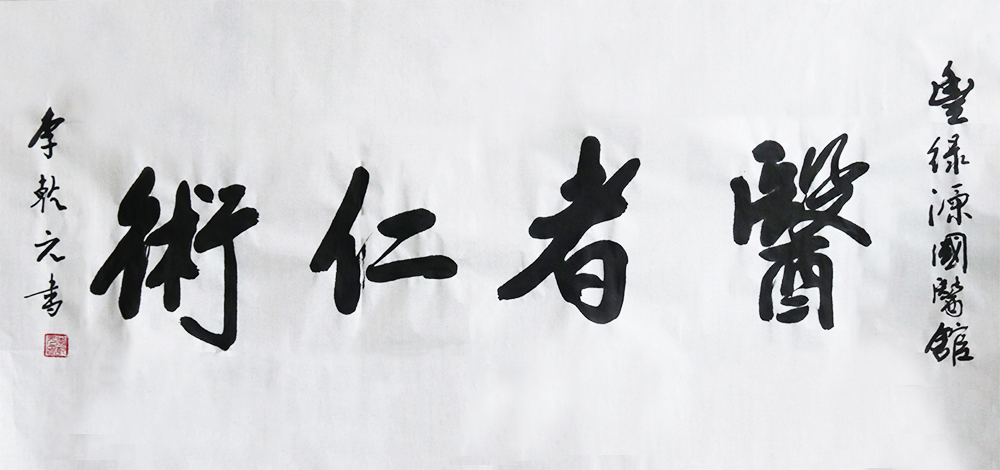 豐綠源國醫館
醫者仁術
李乾元书